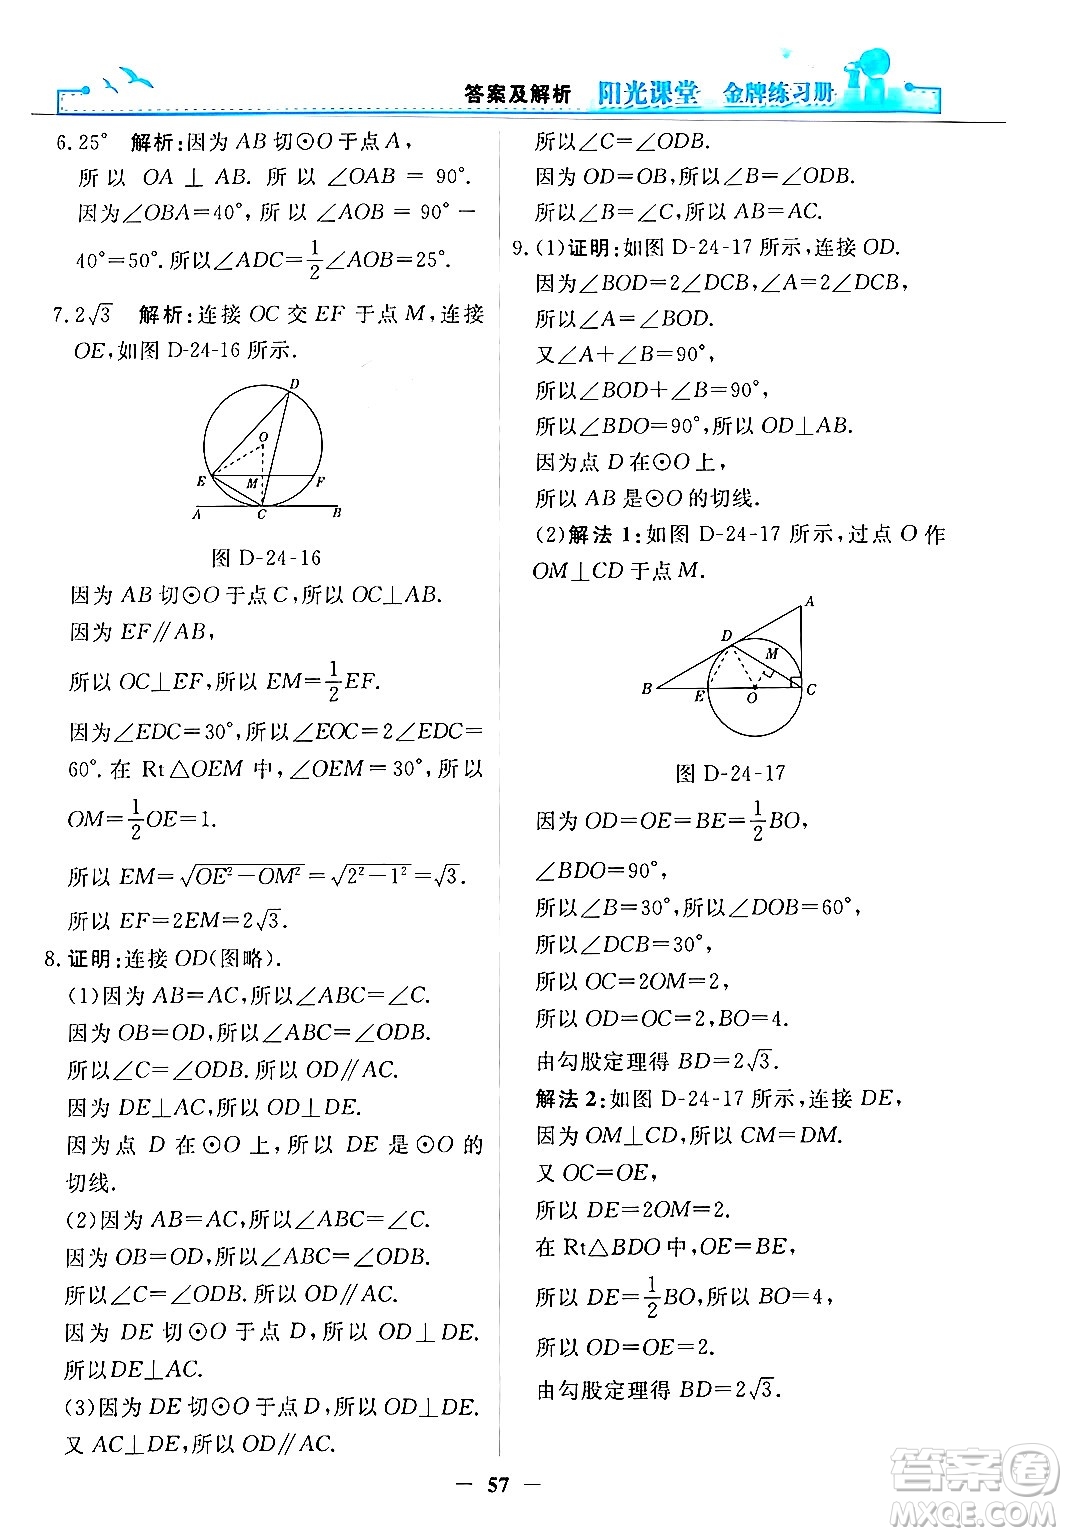 答案及解析 阳光课堂 金牌练习册
6.25° 解析:因为AB切⊙O于点A,
所以 OA⊥AB. 所以∠OAB=90°.
因为∠OBA=40°,所以∠AOB=90°-
40°=50°.所以∠ADC=1/2∠AOB=25°.
7.2√3 解析:连接OC交EF于点M,连接
OE,如图D-24-16所示.
D
O
E M F
A C B
图 D-24-16
因为AB切⊙O于点C,所以OC⊥AB.
因为EF∥AB,
所以OC⊥EF,所以EM=1/2EF.
因为∠EDC=30°,所以∠EOC=2∠EDC=
60°.在Rt△OEM中,∠OEM=30°,所以
OM=1/2OE=1.
所以EM=√(OE²-OM²)=√(2²-1²)=√3.
所以EF=2EM=2√3.
8.证明:连接OD(图略).
(1)因为AB=AC,所以∠ABC=∠C.
因为OB=OD,所以∠ABC=∠ODB.
所以∠C=∠ODB.所以OD∥AC.
因为DE⊥AC,所以OD⊥DE.
因为点D在⊙O上,所以DE是⊙O的
切线.
(2)因为AB=AC,所以∠ABC=∠C.
因为OB=OD,所以∠ABC=∠ODB.
所以∠C=∠ODB.所以OD∥AC.
因为DE切⊙O于点D,所以OD⊥DE.
所以DE⊥AC.
(3)因为DE切⊙O于点D,所以OD⊥DE.
又AC⊥DE,所以OD∥AC.
所以∠C=∠ODB.
因为OD=OB,所以∠B=∠ODB.
所以∠B=∠C,所以AB=AC.
9.(1)证明:如图D-24-17所示,连接OD.
因为∠BOD=2∠DCB,∠A=2∠DCB,
所以∠A=∠BOD.
又∠A+∠B=90°,
所以∠BOD+∠B=90°,
所以∠BDO=90°,所以OD⊥AB.
因为点D在⊙O上,
所以AB是⊙O的切线.
(2)解法1:如图D-24-17所示,过点O作
OM⊥CD于点M.
A
D
M
B E O C
图 D-24-17
因为OD=OE=BE=1/2BO,
∠BDO=90°,
所以∠B=30°,所以∠DOB=60°,
所以∠DCB=30°,
所以OC=2OM=2,
所以OD=OC=2,BO=4.
由勾股定理得BD=2√3.
解法2:如图D-24-17所示,连接DE,
因为OM⊥CD,所以CM=DM.
又OC=OE,
所以DE=2OM=2.
在Rt△BDO中,OE=BE,
所以DE=1/2BO,所以BO=4,
所以OD=OE=2.
由勾股定理得BD=2√3.
— 57 —
答案圈
MXQE.COM